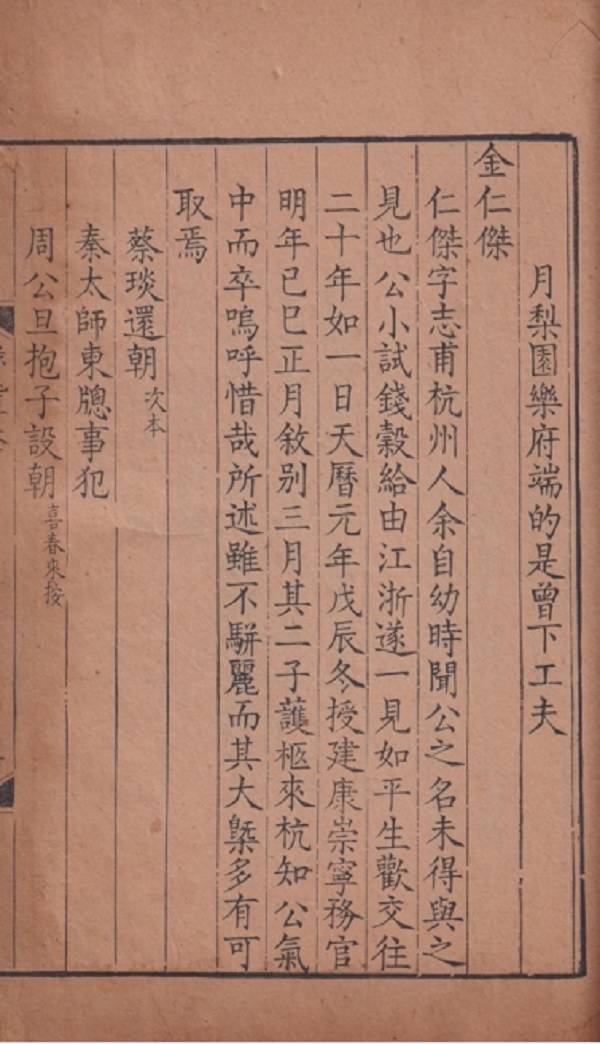 月梨園樂府端的是曾下工夫
金仁傑
仁傑字志甫杭州人余自幼時聞公之名未得與之
見也公小試錢穀給由江浙遂一見如平生歡交往
二十年如一日天曆元年戊辰冬授建康崇寧務官
明年已巳正月敘别三月其二子護柩來杭知公氣
中而卒嗚呼惜哉所述雖不駢麗而其大槩多有可
取焉
蔡琰還朝次本
秦太師東牕事犯
周公旦抱子設朝喜春來按